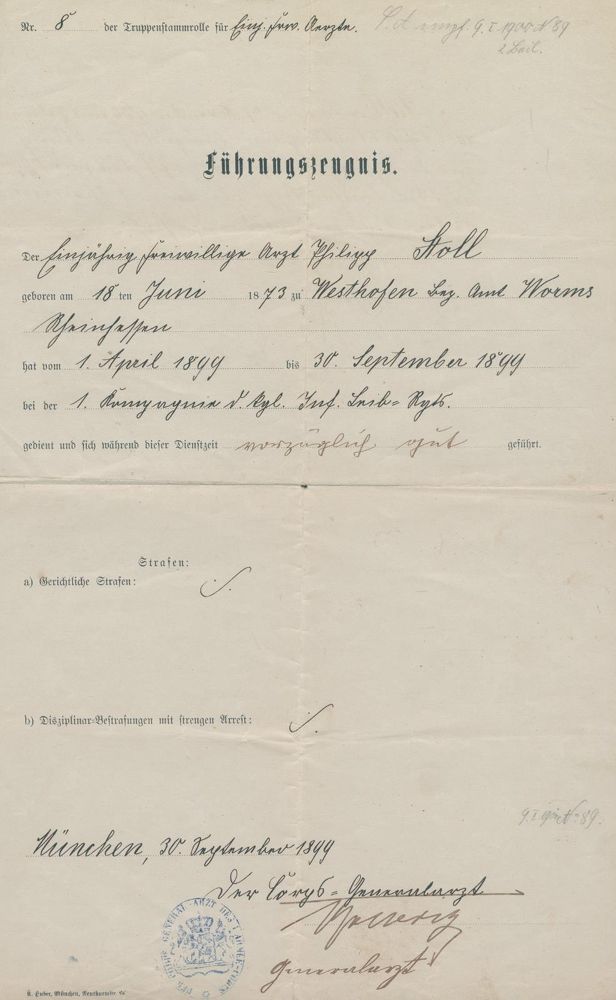 Nr. 8 der Truppenstammrolle für Einj. frw. Aerzte.
9. I. 1900 N 89
2 Beil.
Führungszeugnis.
Der Einjährig freiwillige Arzt Philipp Stoll
geboren am 18 ten Juni 1873 zu Westhofen Bez. Amt Worms
Rheinhessen
hat vom 1. April 1899 bis 30. September 1899
bei der 1. Kompagnie d. kgl. Inf. Leib=Rgts.
gedient und sich während dieser Dienstzeit vorzüglich gut geführt.
Strafen:
a) Gerichtliche Strafen:
b) Disziplinar-Bestrafungen mit strengen Arrest:
89.
München, 30. September 1899
Der Corps=Generalarzt
Generalarzt
GENERAL-ARZT DES I. ARMEE-CORPS